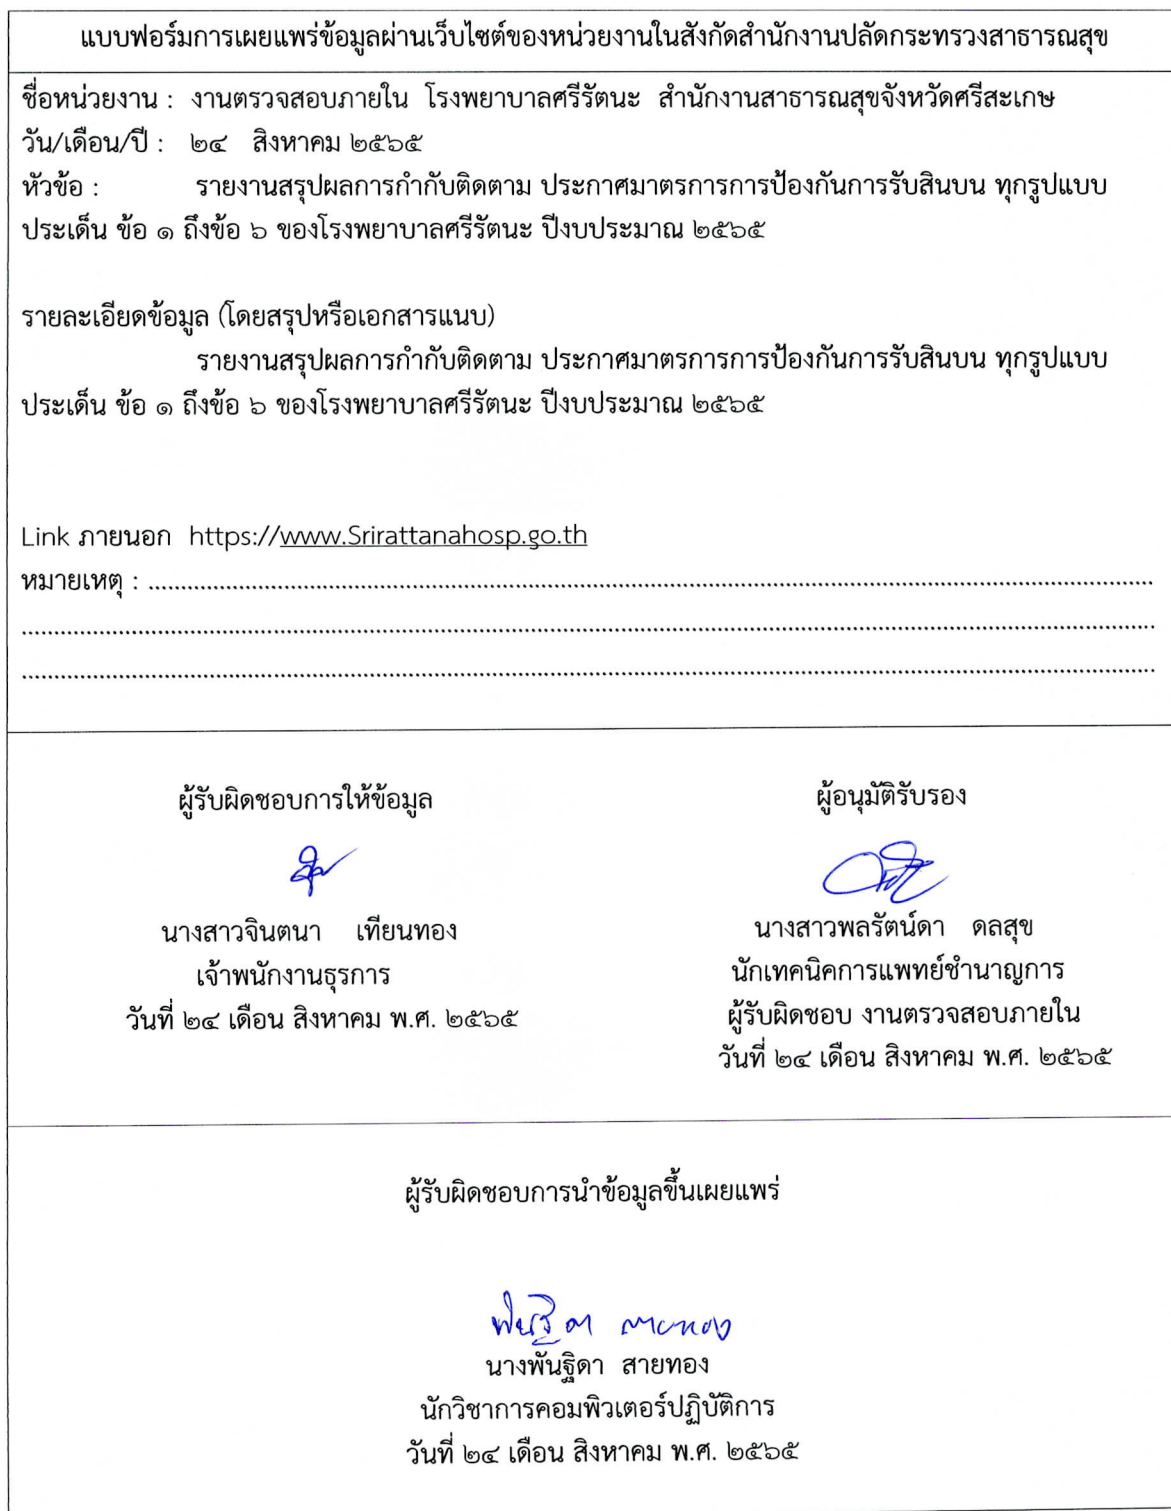 แบบฟอร์มการเผยแพร่ข้อมูลผ่านเว็บไซต์ของหน่วยงานในสังกัดสำนักงานปลัดกระทรวงสาธารณสุข
ชื่อหน่วยงาน : งานตรวจสอบภายใน โรงพยาบาลศรีรัตนะ สำนักงานสาธารณสุขจังหวัดศรีสะเกษ
วัน/เดือน/ปี : ๒๔ สิงหาคม ๒๕๖๕
หัวข้อ : รายงานสรุปผลการกำกับติดตาม ประกาศมาตรการการป้องกันการรับสินบน ทุกรูปแบบ
ประเด็น ข้อ ๑ ถึงข้อ ๖ ของโรงพยาบาลศรีรัตนะ ปีงบประมาณ ๒๕๖๕
รายละเอียดข้อมูล (โดยสรุปหรือเอกสารแนบ)
รายงานสรุปผลการกำกับติดตาม ประกาศมาตรการการป้องกันการรับสินบน ทุกรูปแบบ
ประเด็น ข้อ ๑ ถึงข้อ ๖ ของโรงพยาบาลศรีรัตนะ ปีงบประมาณ ๒๕๖๕
Link ภายนอก https://www.Srirattanahosp.go.th
หมายเหตุ : ................................................................
................................................................
................................................................
ผู้รับผิดชอบการให้ข้อมูล
นางสาวจินตนา เทียนทอง
เจ้าพนักงานธุรการ
วันที่ ๒๔ เดือน สิงหาคม พ.ศ. ๒๕๖๕
ผู้อนุมัติรับรอง
นางสาวพลรัตน์ดา ดลสุข
นักเทคนิคการแพทย์ชำนาญการ
ผู้รับผิดชอบ งานตรวจสอบภายใน
วันที่ ๒๔ เดือน สิงหาคม พ.ศ. ๒๕๖๕
ผู้รับผิดชอบการนำข้อมูลขึ้นเผยแพร่
พันฐิดา สายทอง
นางพันฐิดา สายทอง
นักวิชาการคอมพิวเตอร์ปฏิบัติการ
วันที่ ๒๔ เดือน สิงหาคม พ.ศ. ๒๕๖๕